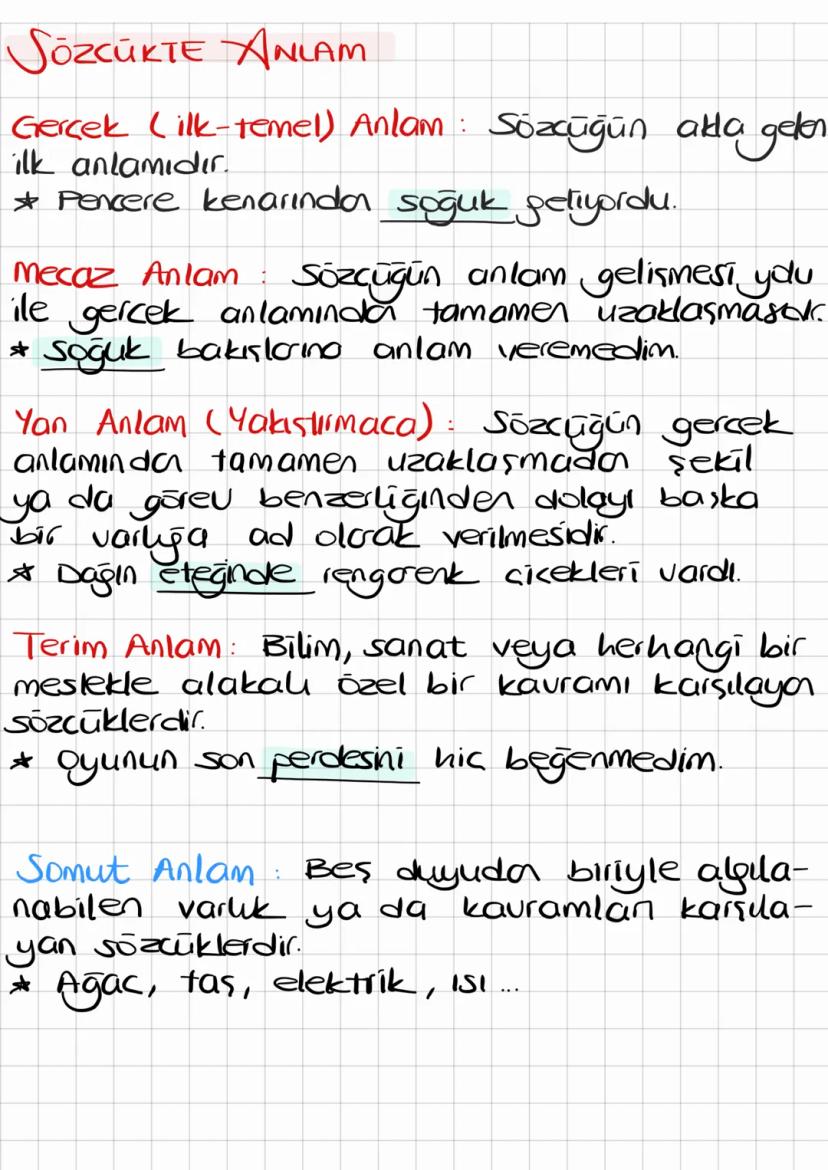 SÖZCÜKTE ANLAM
Gerçek (ilk-temel) Anlam : Sözcüğün akla gelen
ilk anlamıdır.
* Pencere kenarından soğuk geliyordu.
Mecaz Anlam : Sözcüğün anlam gelişmesi yolu
ile gerçek anlamından tamamen uzaklaşmasıdır.
* Soğuk bakışlarına anlam veremedim.
Yan Anlam (Yakıştırmaca) : Sözcüğün gerçek
anlamından tamamen uzaklaşmadan şekil
ya da görev benzerliğinden dolayı başka
bir varlığa ad olarak verilmesidir.
* Dağın eteğinde rengarenk çiçekleri vardı.
Terim Anlam : Bilim, sanat veya herhangi bir
meslekle alakalı özel bir kavramı karşılayan
sözcüklerdir.
* Oyunun son perdesini hiç beğenmedim.
Somut Anlam : Beş duyudan biriyle algıla-
nabilen varlık ya da kavramları karşıla-
yan sözcüklerdir.
* Ağaç, taş, elektrik, ısı ...